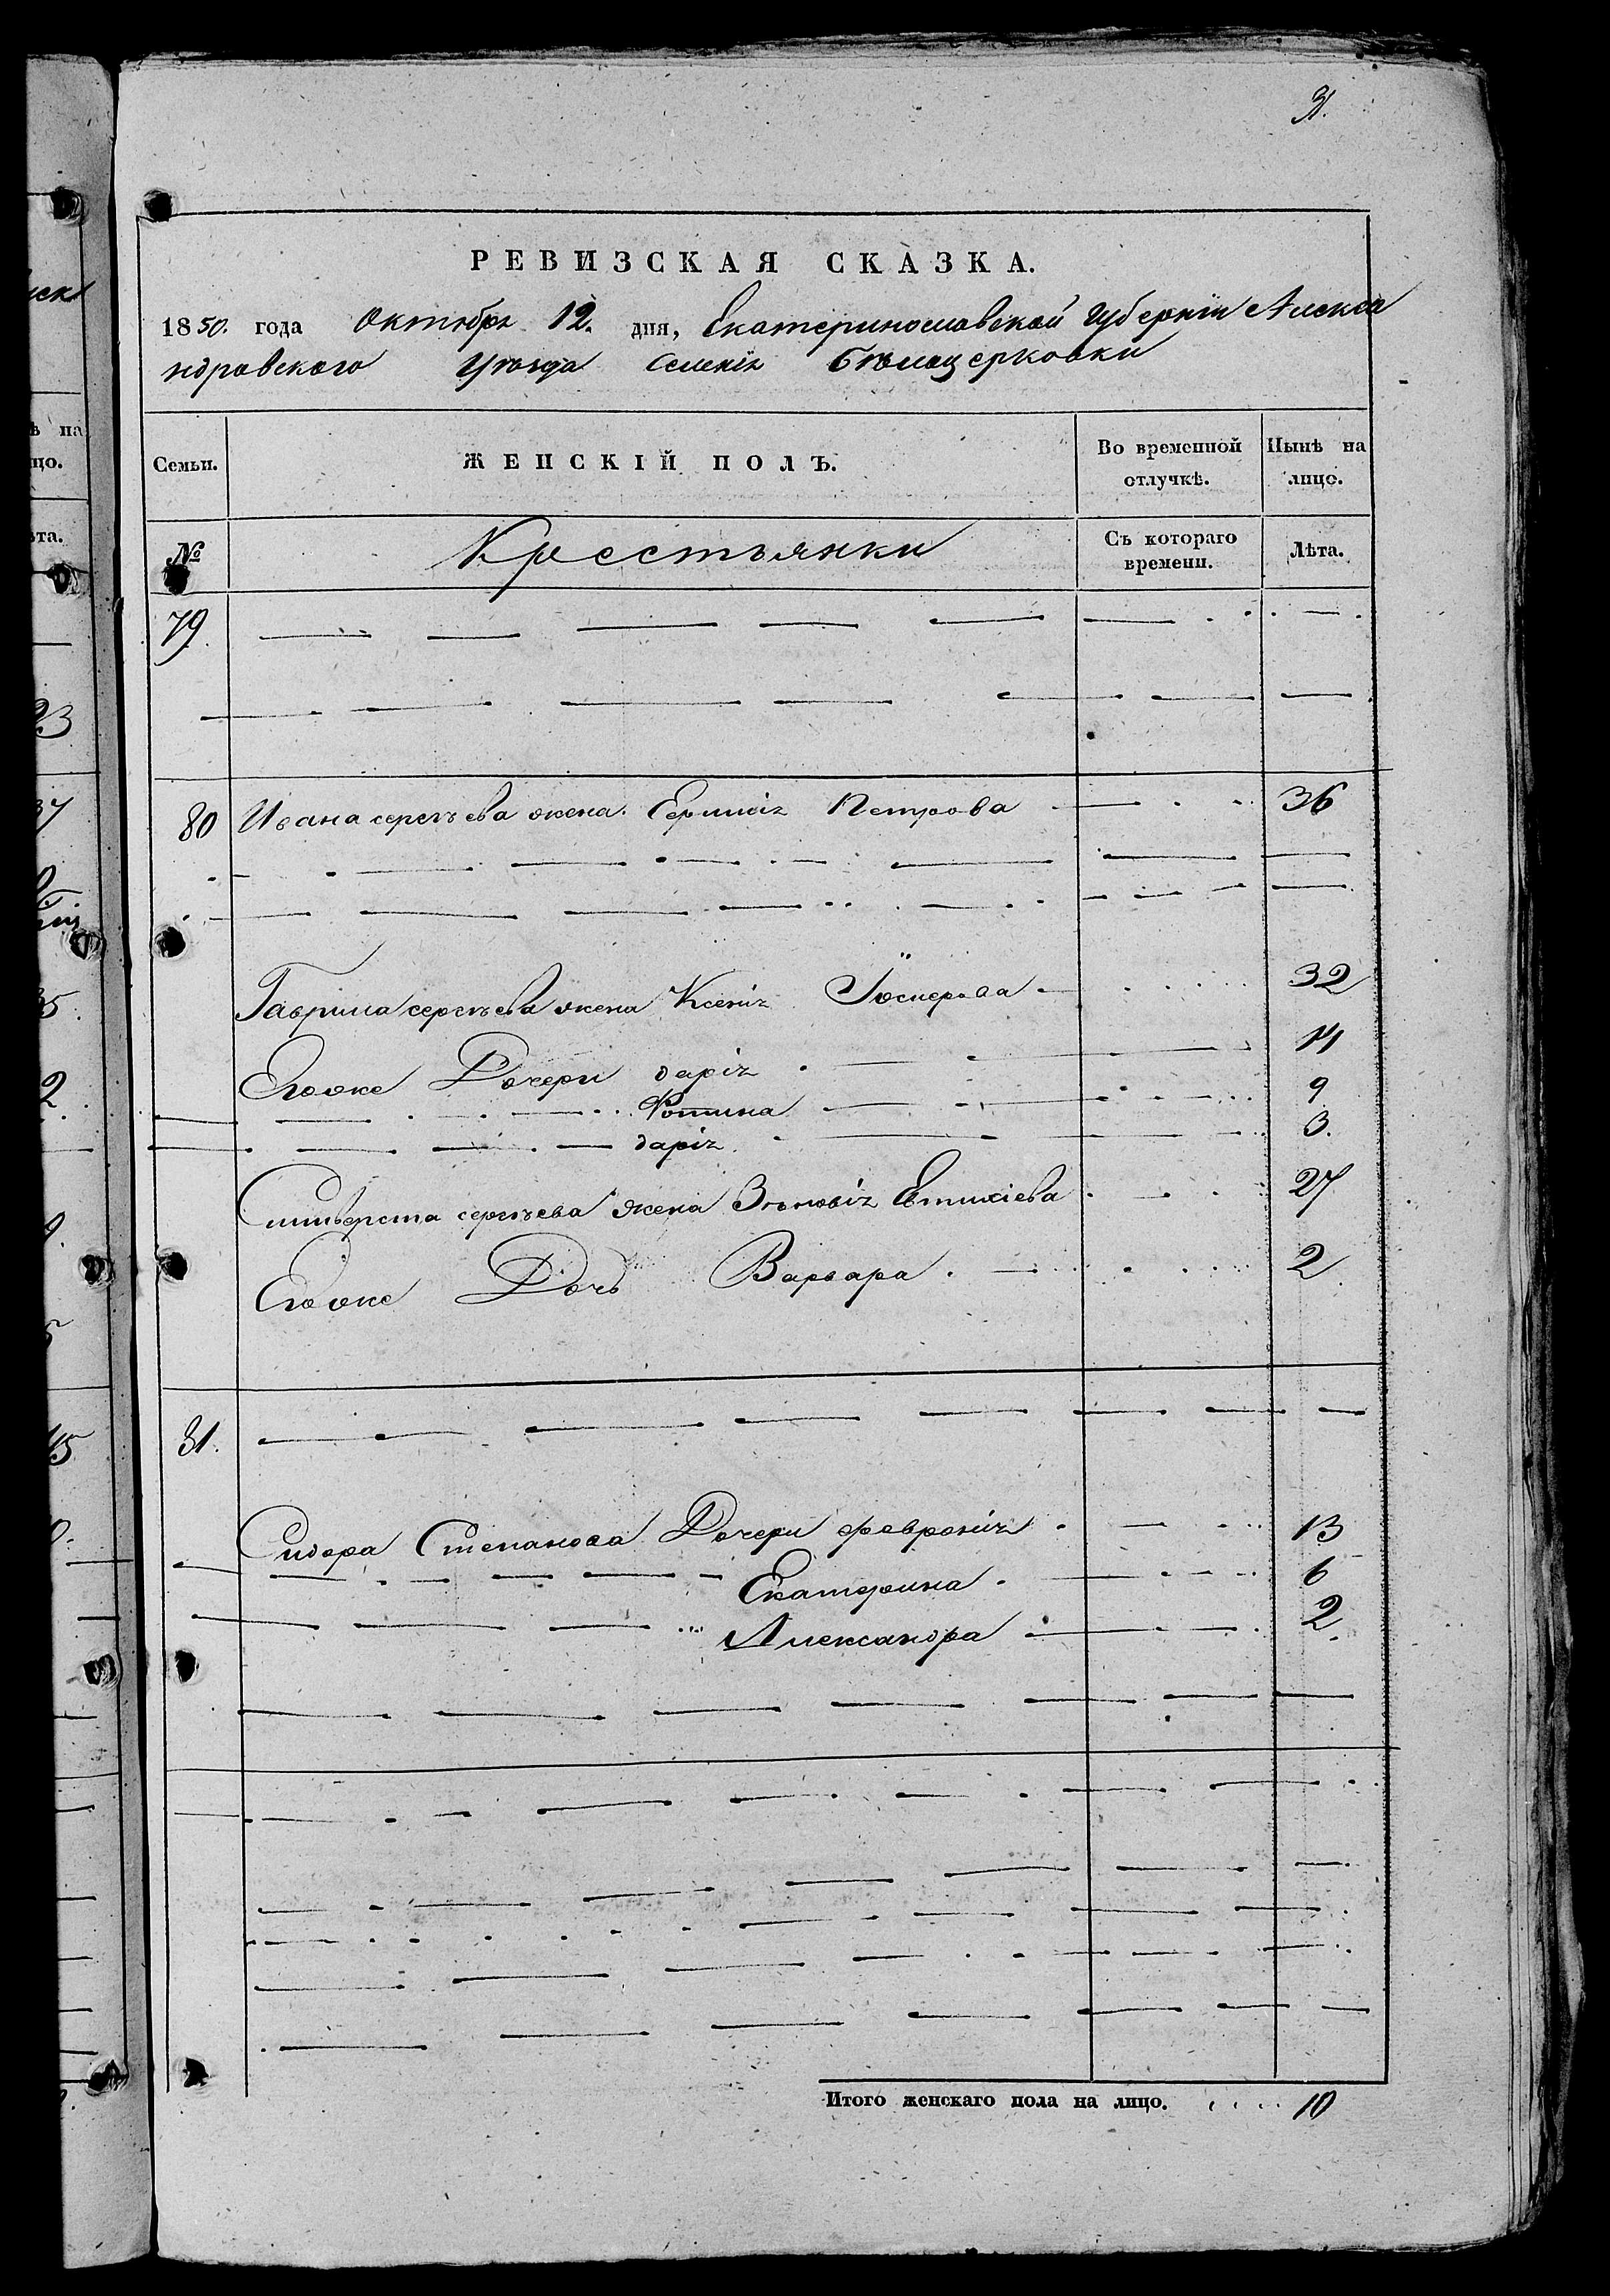 31.
РЕВИЗСКАЯ СКАЗКА.
1850. года Октября 12. дня, Екатеринославской Губерніи Алекса
ндровского Уѣзда Селенія Бѣлоцерковки
Семьи. ЖЕНСКІЙ ПОЛЪ. Во временной отлучкѣ. Нынѣ на лицо.
№ Крестьянки Съ котораго времени. Лѣта.
79.
80 Ивана сергѣева жена. Петрова 36
Гаврила сергѣева жена Ксенія 32
Его же Дочери дарія 14
Фотина 9
дарія. 3.
Сильверста сергѣева жена Зѣновія Евтихіева 27
Его же Дочь Варвара. 2
81.
Сидора Степанова Дочери февронія 13
Екатерина. 6
Александра 2.
Итого женскаго пола на лицо. 10